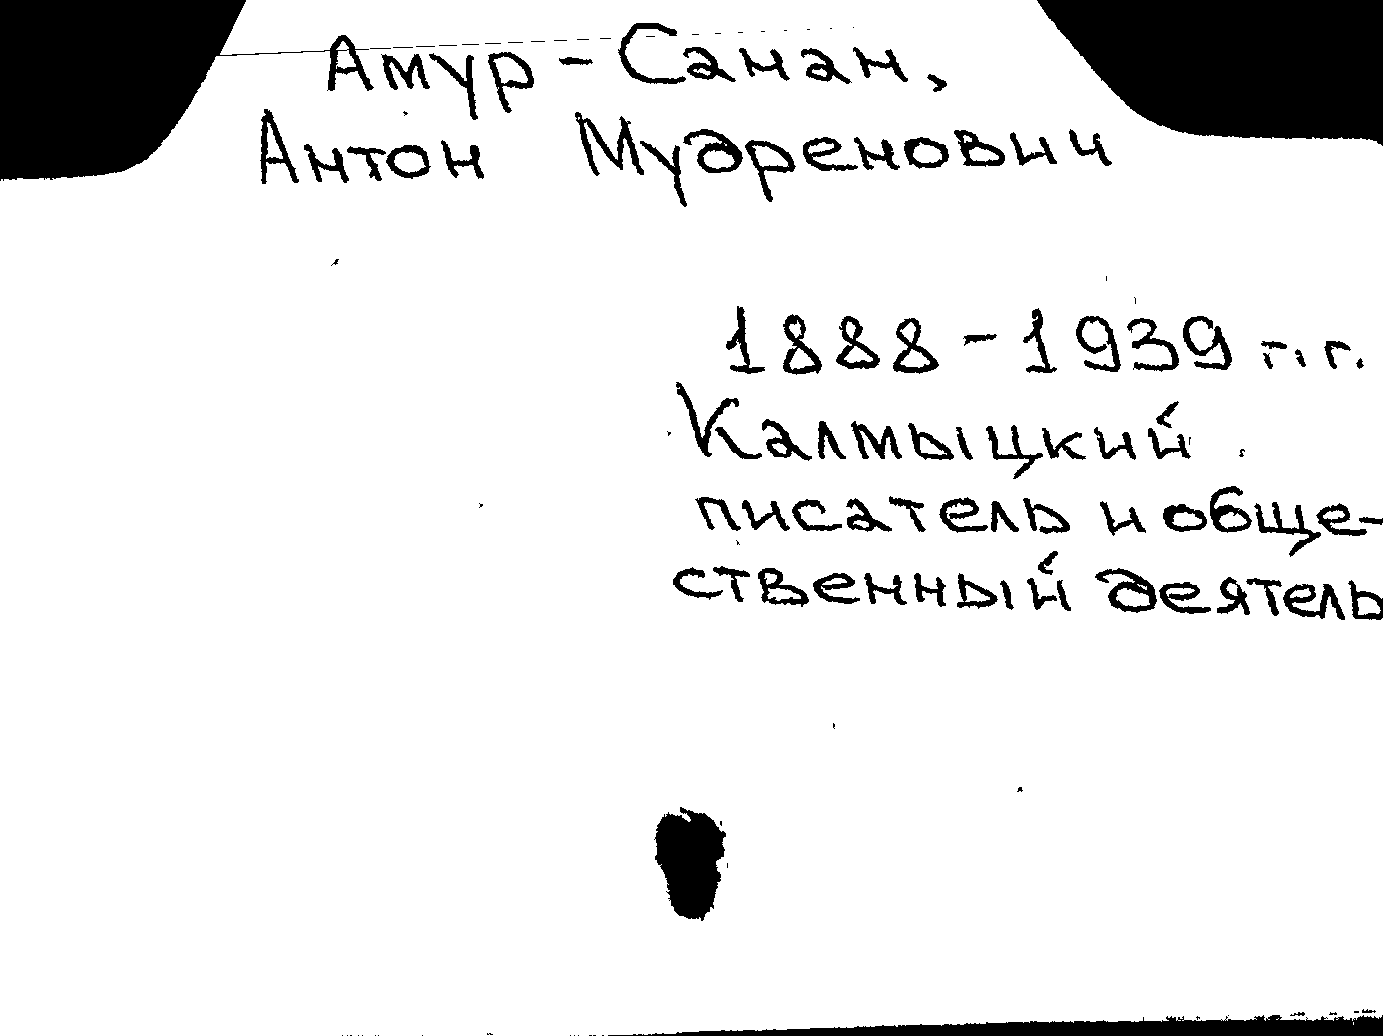 Амур-Санан,
Антон Мудренович
1888-1939 г.г.
Калмыцкий
писатель и обще-
ственный деятель